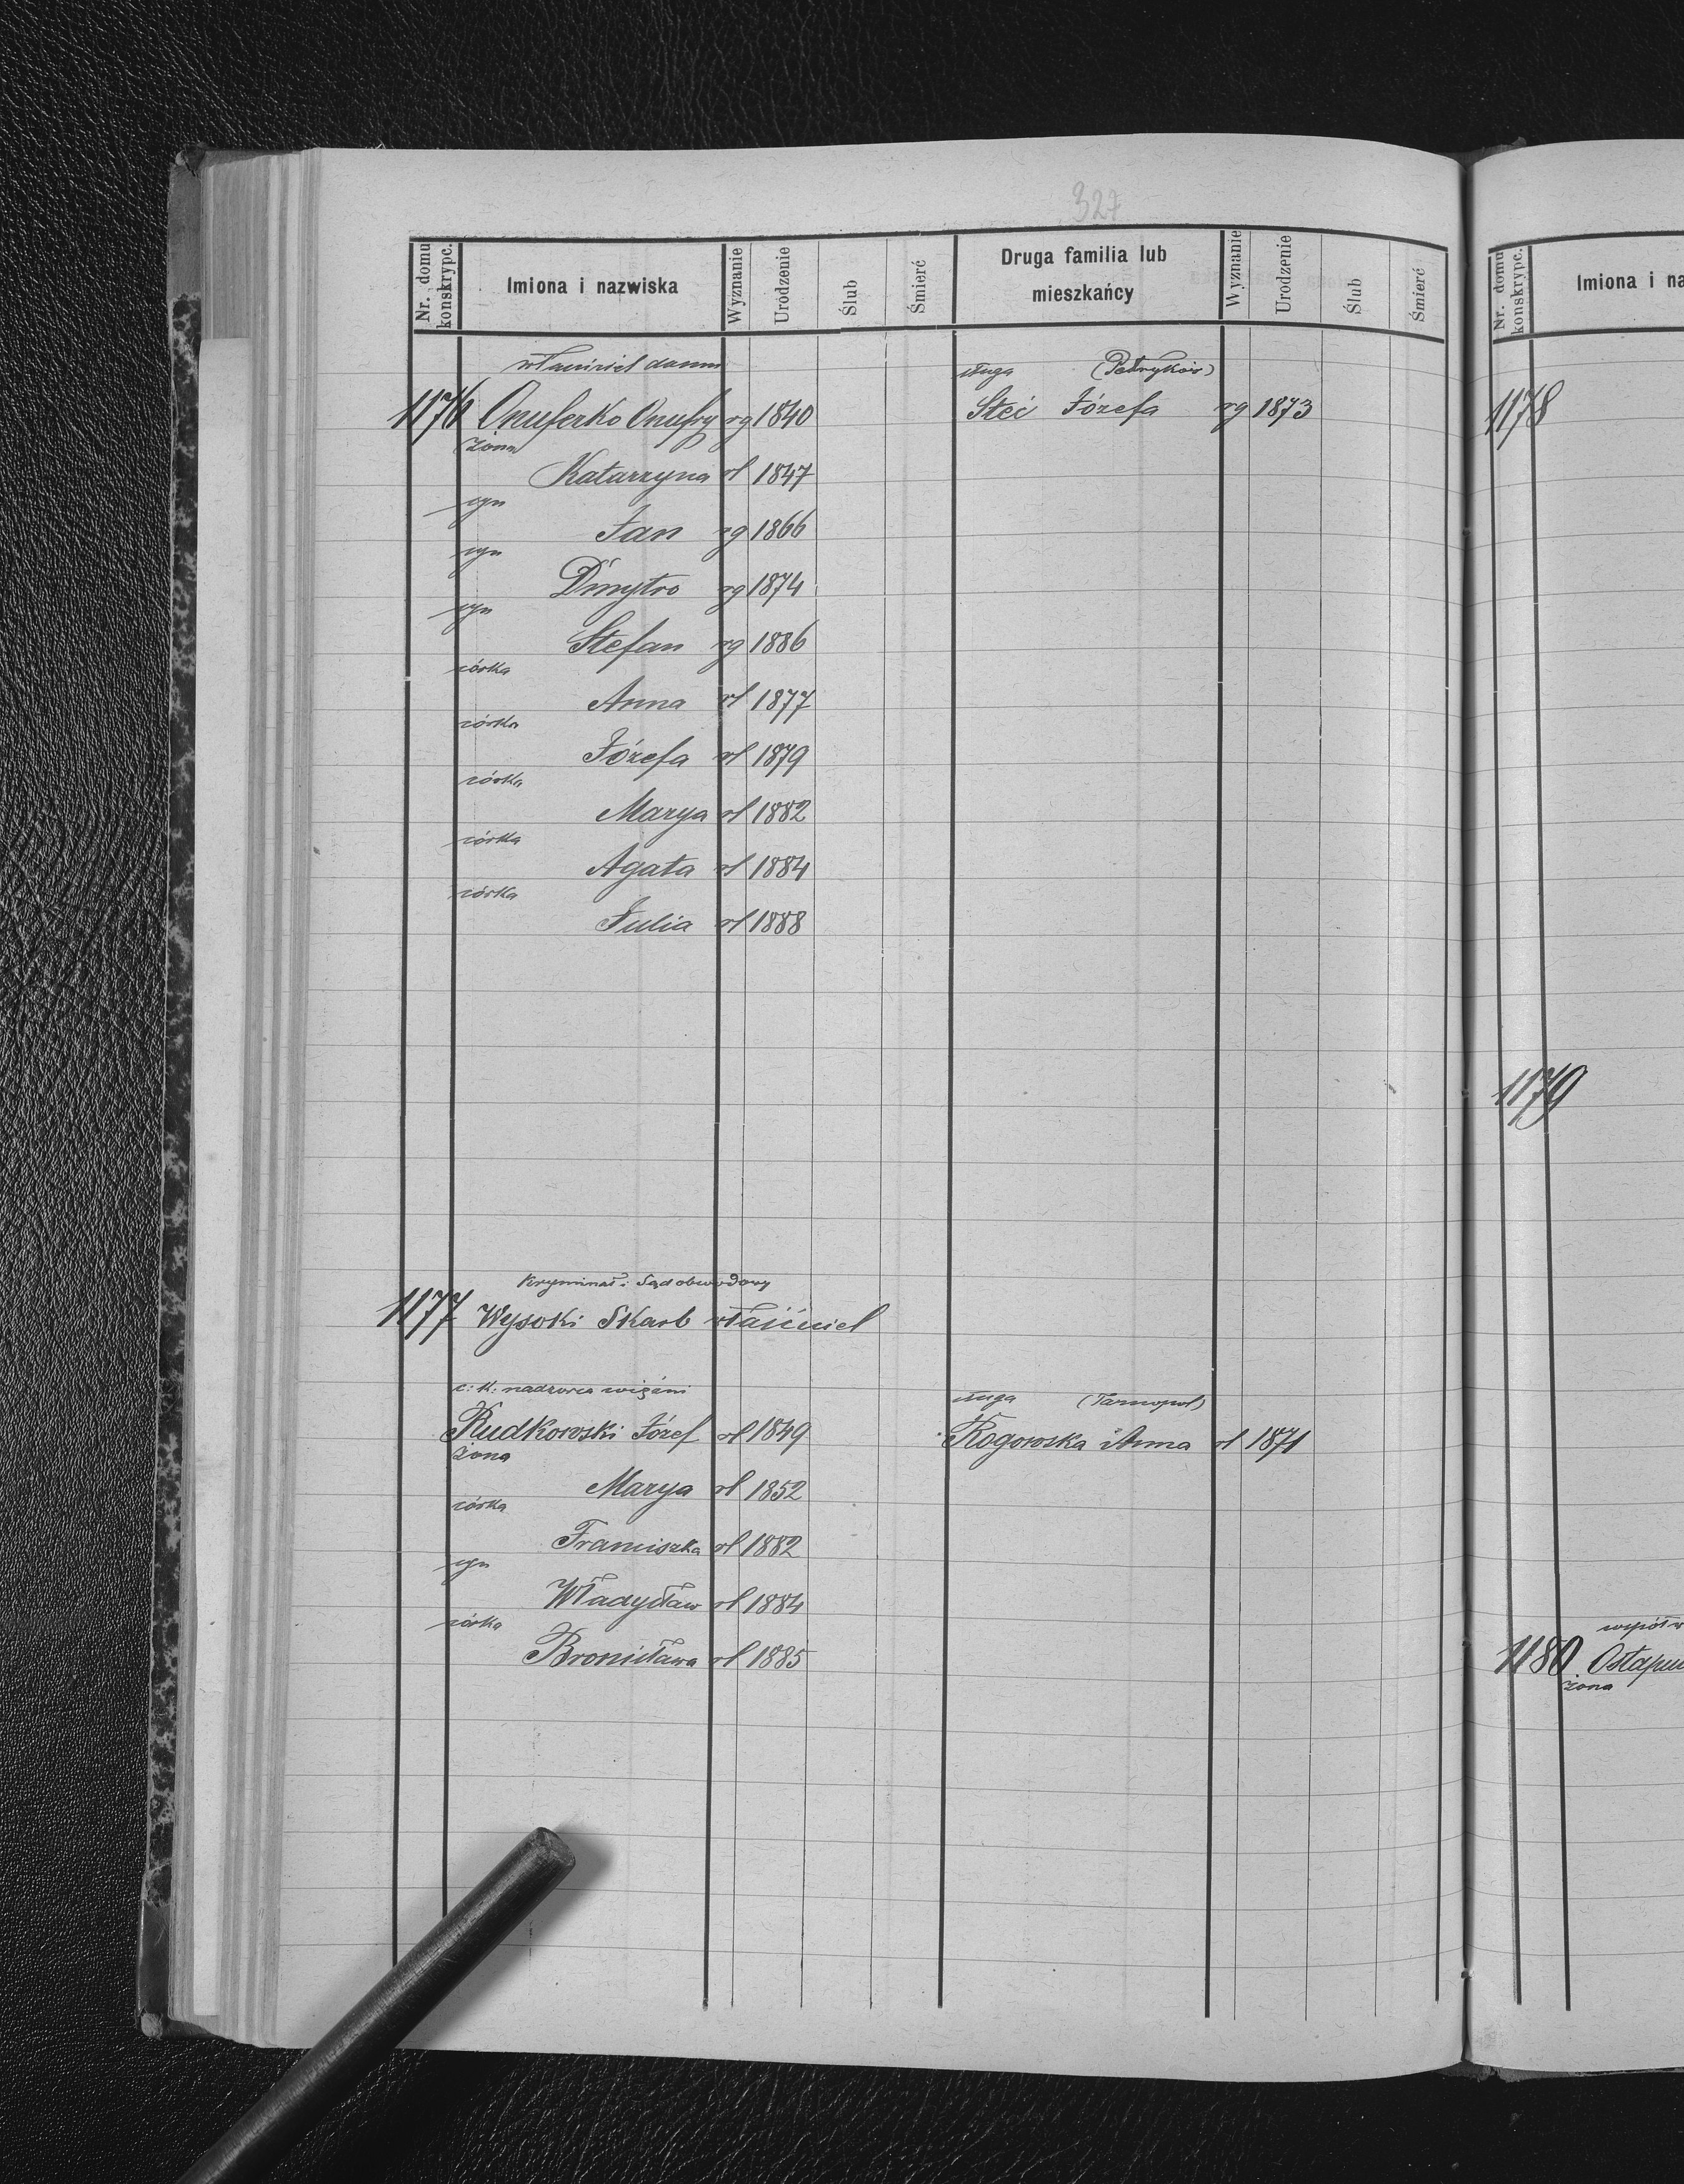 327
Nr. domu konskrypc. Imiona i nazwiska Wyznanie Urodzenie Ślub Śmierć Druga familia lub mieszkańcy Wyznanie Urodzenie Ślub Śmierć
właściciel domu
sługa (Petryków)
1176 Onuferko Onufry rg 1840
Steć Józefa rg 1873
żona
Katarzyna rl 1847
syn
Jan rg 1866
syn
Dmytro rg 1874
syn
Stefan rg 1886
córka
Anna rl 1877
córka
Józefa rl 1879
córka
Marya rl 1882
córka
Agata rl 1884
córka
Julia rl 1888
Kryminał i Sąd obwodowy
1177 Wysoki Skarb właściciel
c: k: nadzorca więźni
sługa (Tarnopol)
Rudkowski Józef rl 1849
Rogowska Anna rl 1871
żona
Marya rl 1852
córka
Franciszka rl 1882
syn
Władysław rl 1884
córka
Bronisława rl 1885
Nr. domu konskrypc. Imiona i na
1178
1179
współw
1180 Ostapu
żona